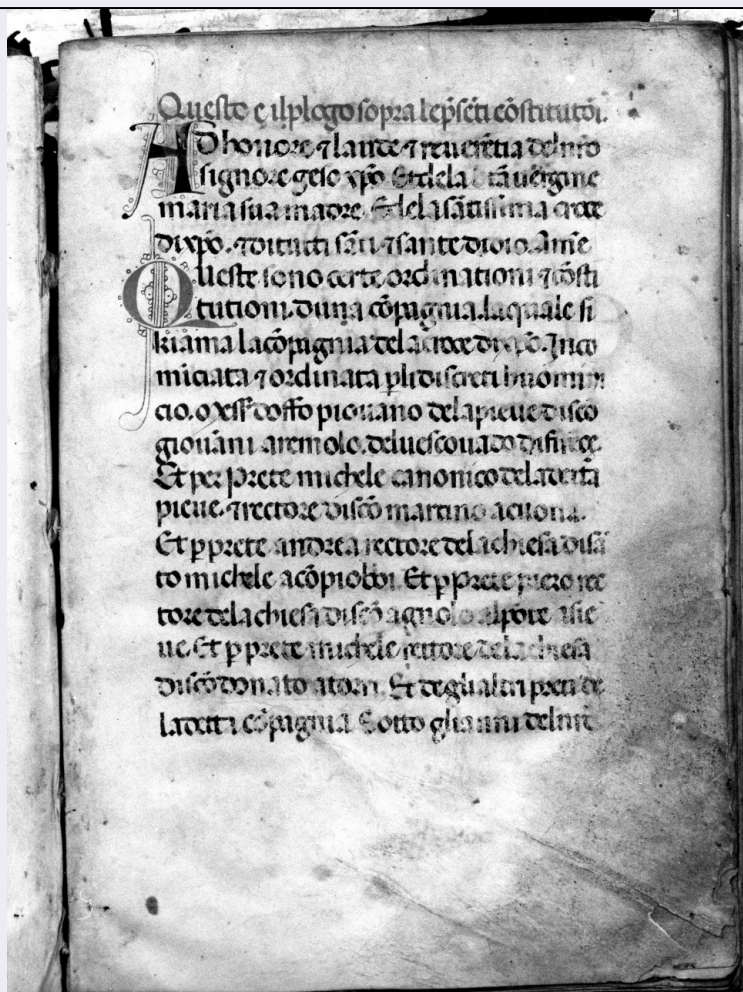 Queste e ilplogo sopra lepsēti cōstitutōi.
AD honore ⁊ laude ⁊ reuerētia delnr̄o
signore geso xp̄o. Et dela tā uergine
maria sua madre. Et dela sātissima croce
dixp̄o. ⁊ di tucti sc̄i ⁊ sante didio. Am̄e
Queste sono certe ordinationi ⁊ cōsti
tutioni. duna cōpagnia. laquale si
kiama la cōpagnia dela croce dixp̄o. Inco
miciata ⁊ ordinata p̱ li discreti huomini
cio. o doffo piouano dela pieue discō
giouāni aremolo. deluescouado
Et per prete michele canonico dela decta
pieue. ⁊ rectore discō martino
Et p̱ prete andrea rectore dela chiesa disā
to michele acōpiobbi. Et p̱ prete piero rec
tore dela chiesa discō agnolo alpōte asie
ue. Et p̱ prete michele rettore dela chiesa
discō donato atorri. Et degli altri preti de
la decta cōpagnia. Sotto gli anni delnr̄